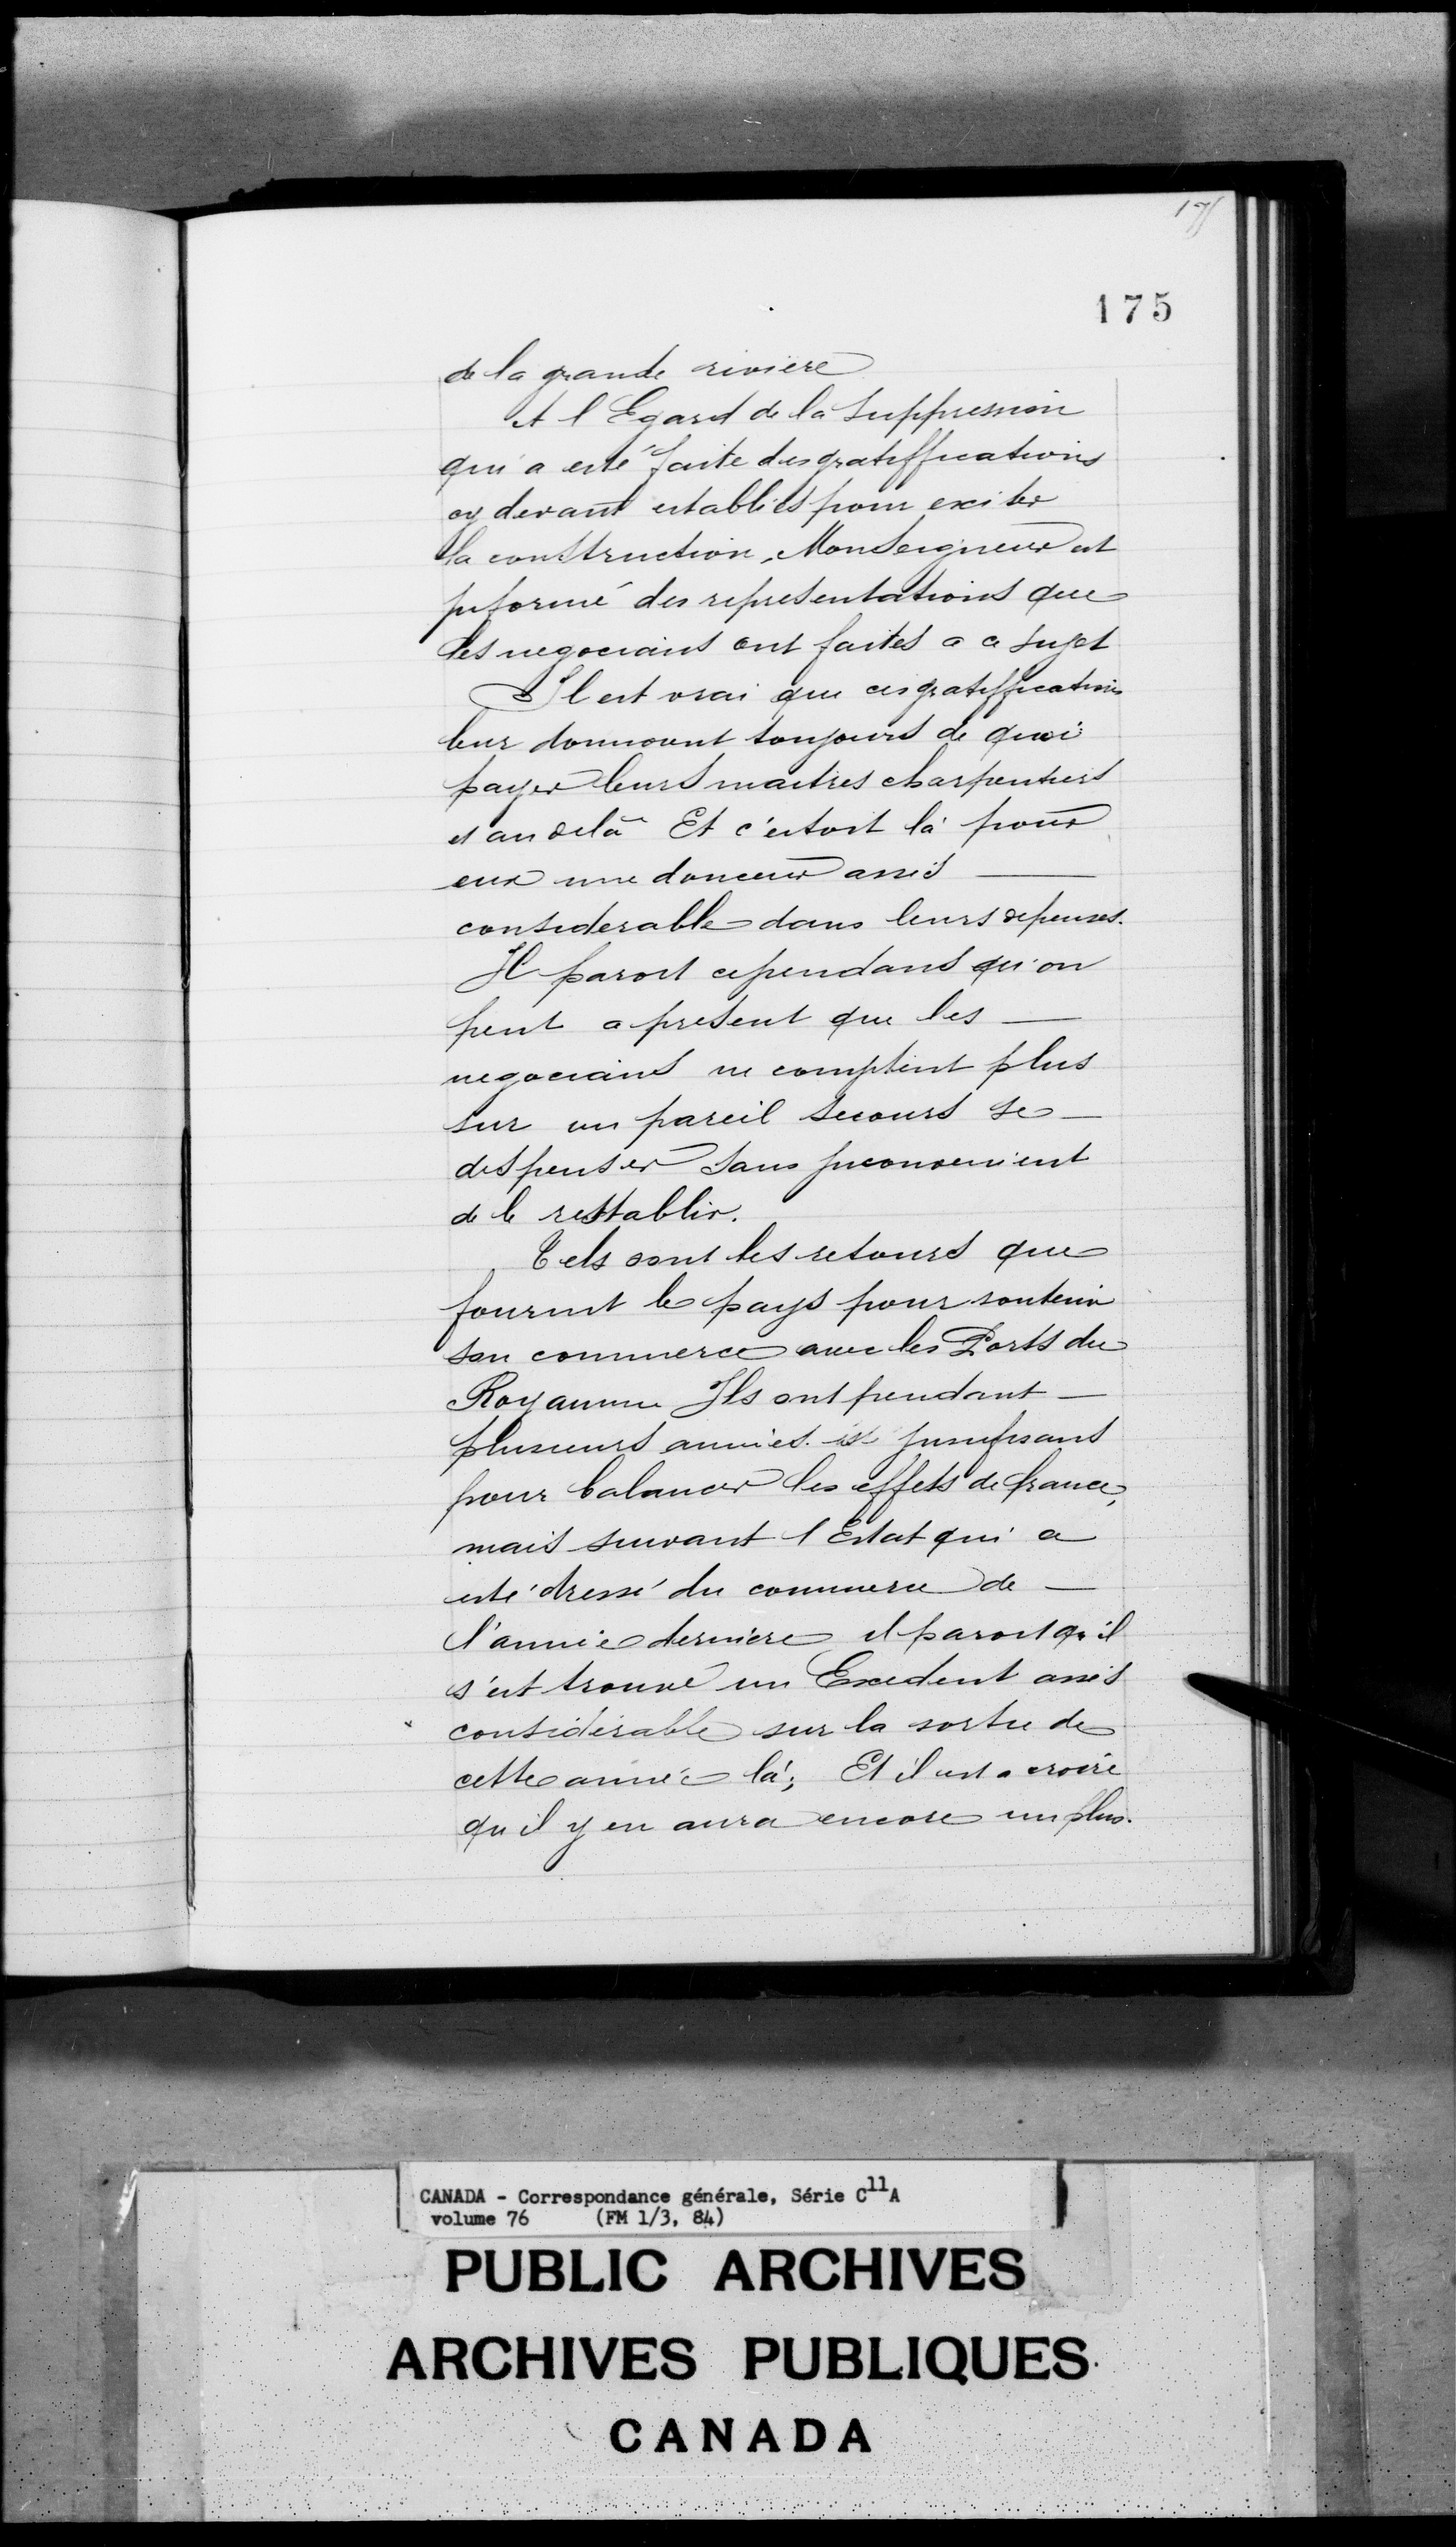 175
de la grande riviere
A l Egard de la suppression
qui a esté faite des gratiffications
cy devant establies pour exciter
la construction, Monseigneur est
informé des representations que
les negocians ont faites a ce sujet
Il est vrai que ces gratiffications
leur donnoient toujours de quoi
payer leurs maitres charpentiers
et au delà Et c'estoit là pour
eux une douceur assés —
considerable dans leurs depenses.
Il paroit cependant qu'on
peut a present que les —
negocians ne comptent plus
sur un pareil secours se —
dispenser sans inconvenient
de le restablir.
Tels sont les retours que
fournit le pays pour soutenir
son commerce avec les Ports du
Royaume Ils ont pendant —
plusieurs années insufisans
pour balancer les effets de france,
mais suivant l Estat qui a
esté dressé du commerce de —
l'année derniere il paroit qu il
s'est trouvé un Excedent assés
considérable sur la sortie de
cette année là; Et il est a croire
qu il y en aura encore un plus.
CANADA - Correspondance générale, Série C11A
volume 76 (FM 1/3, 84)
PUBLIC ARCHIVES
ARCHIVES PUBLIQUES
CANADA